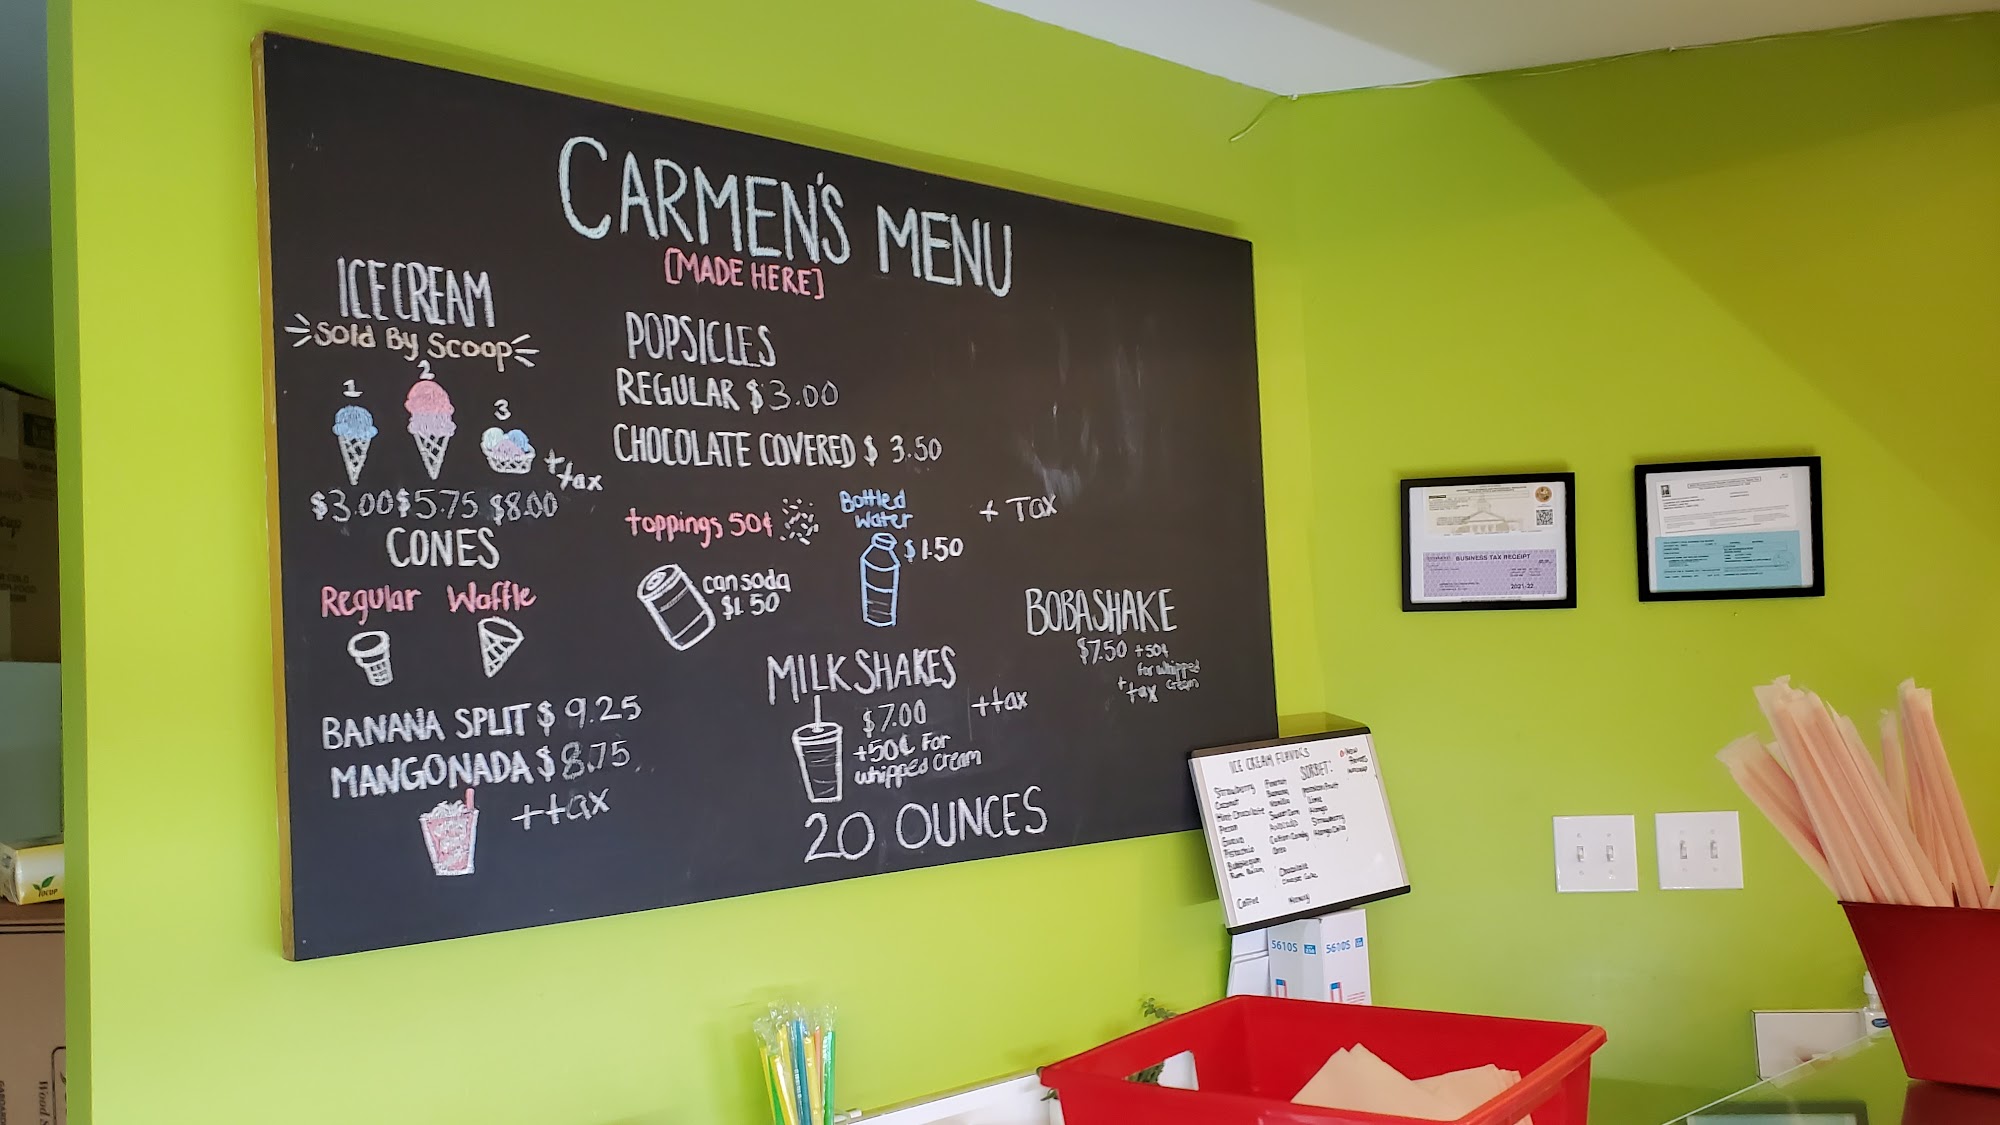 CARMEN'S MENU
[MADE HERE]
ICE CREAM
Sold By Scoop
1 2 3
$3.00 $5.75 $8.00
+ tax
CONES
Regular Waffle
BANANA SPLIT $ 9.25
MANGONADA $ 8.75
+ tax
POPSICLES
REGULAR $ 3.00
CHOCOLATE COVERED $ 3.50
toppings 50¢
Bottled
Water
$1.50
+ Tax
can soda
$1.50
MILKSHAKES
$7.00
+50¢ For
whipped Cream
+tax
20 OUNCES
BOBASHAKE
$7.50 +50¢
for whipped
cream
+ tax
ICE CREAM FLAVORS
Strawberry
Coconut
Mint Chocolate
Pecan
Guava
Pistachio
Bubblegum
Rum Raisin
Coffee
Banana
Vanilla
Sweet Corn
Cotton Candy
Oreo
Chocolate
SORBET:
Passion Fruit
Lime
Mango
Strawberry
BUSINESS TAX RECEIPT
2021-22
5610S
5610S